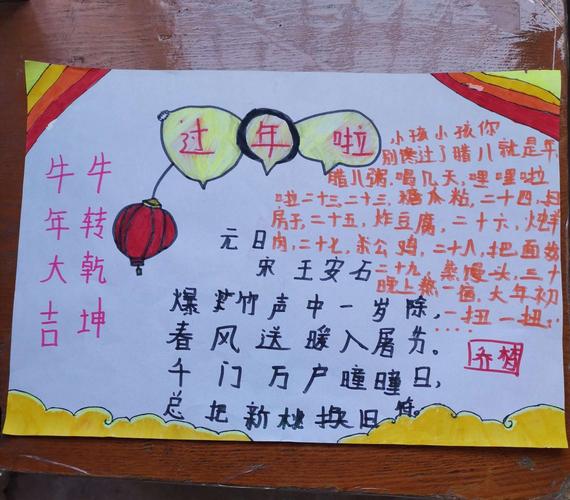 过年啦
牛转乾坤
牛年大吉
小孩小孩你
别馋过了腊八就是年
腊八粥,喝几天,哩哩啦
啦二十三,二十三,糖瓜粘,二十四,扫
房子,二十五,炸豆腐,二十六,炖羊
肉,二十七,杀公鸡,二十八,把面发
二十九,蒸馒头,三十
晚上熬一宿,大年初
一扭一扭,
......
元日
宋 王安石
爆竹声中一岁除,
春风送暖入屠苏。
千门万户瞳瞳日,
总把新桃换旧符。